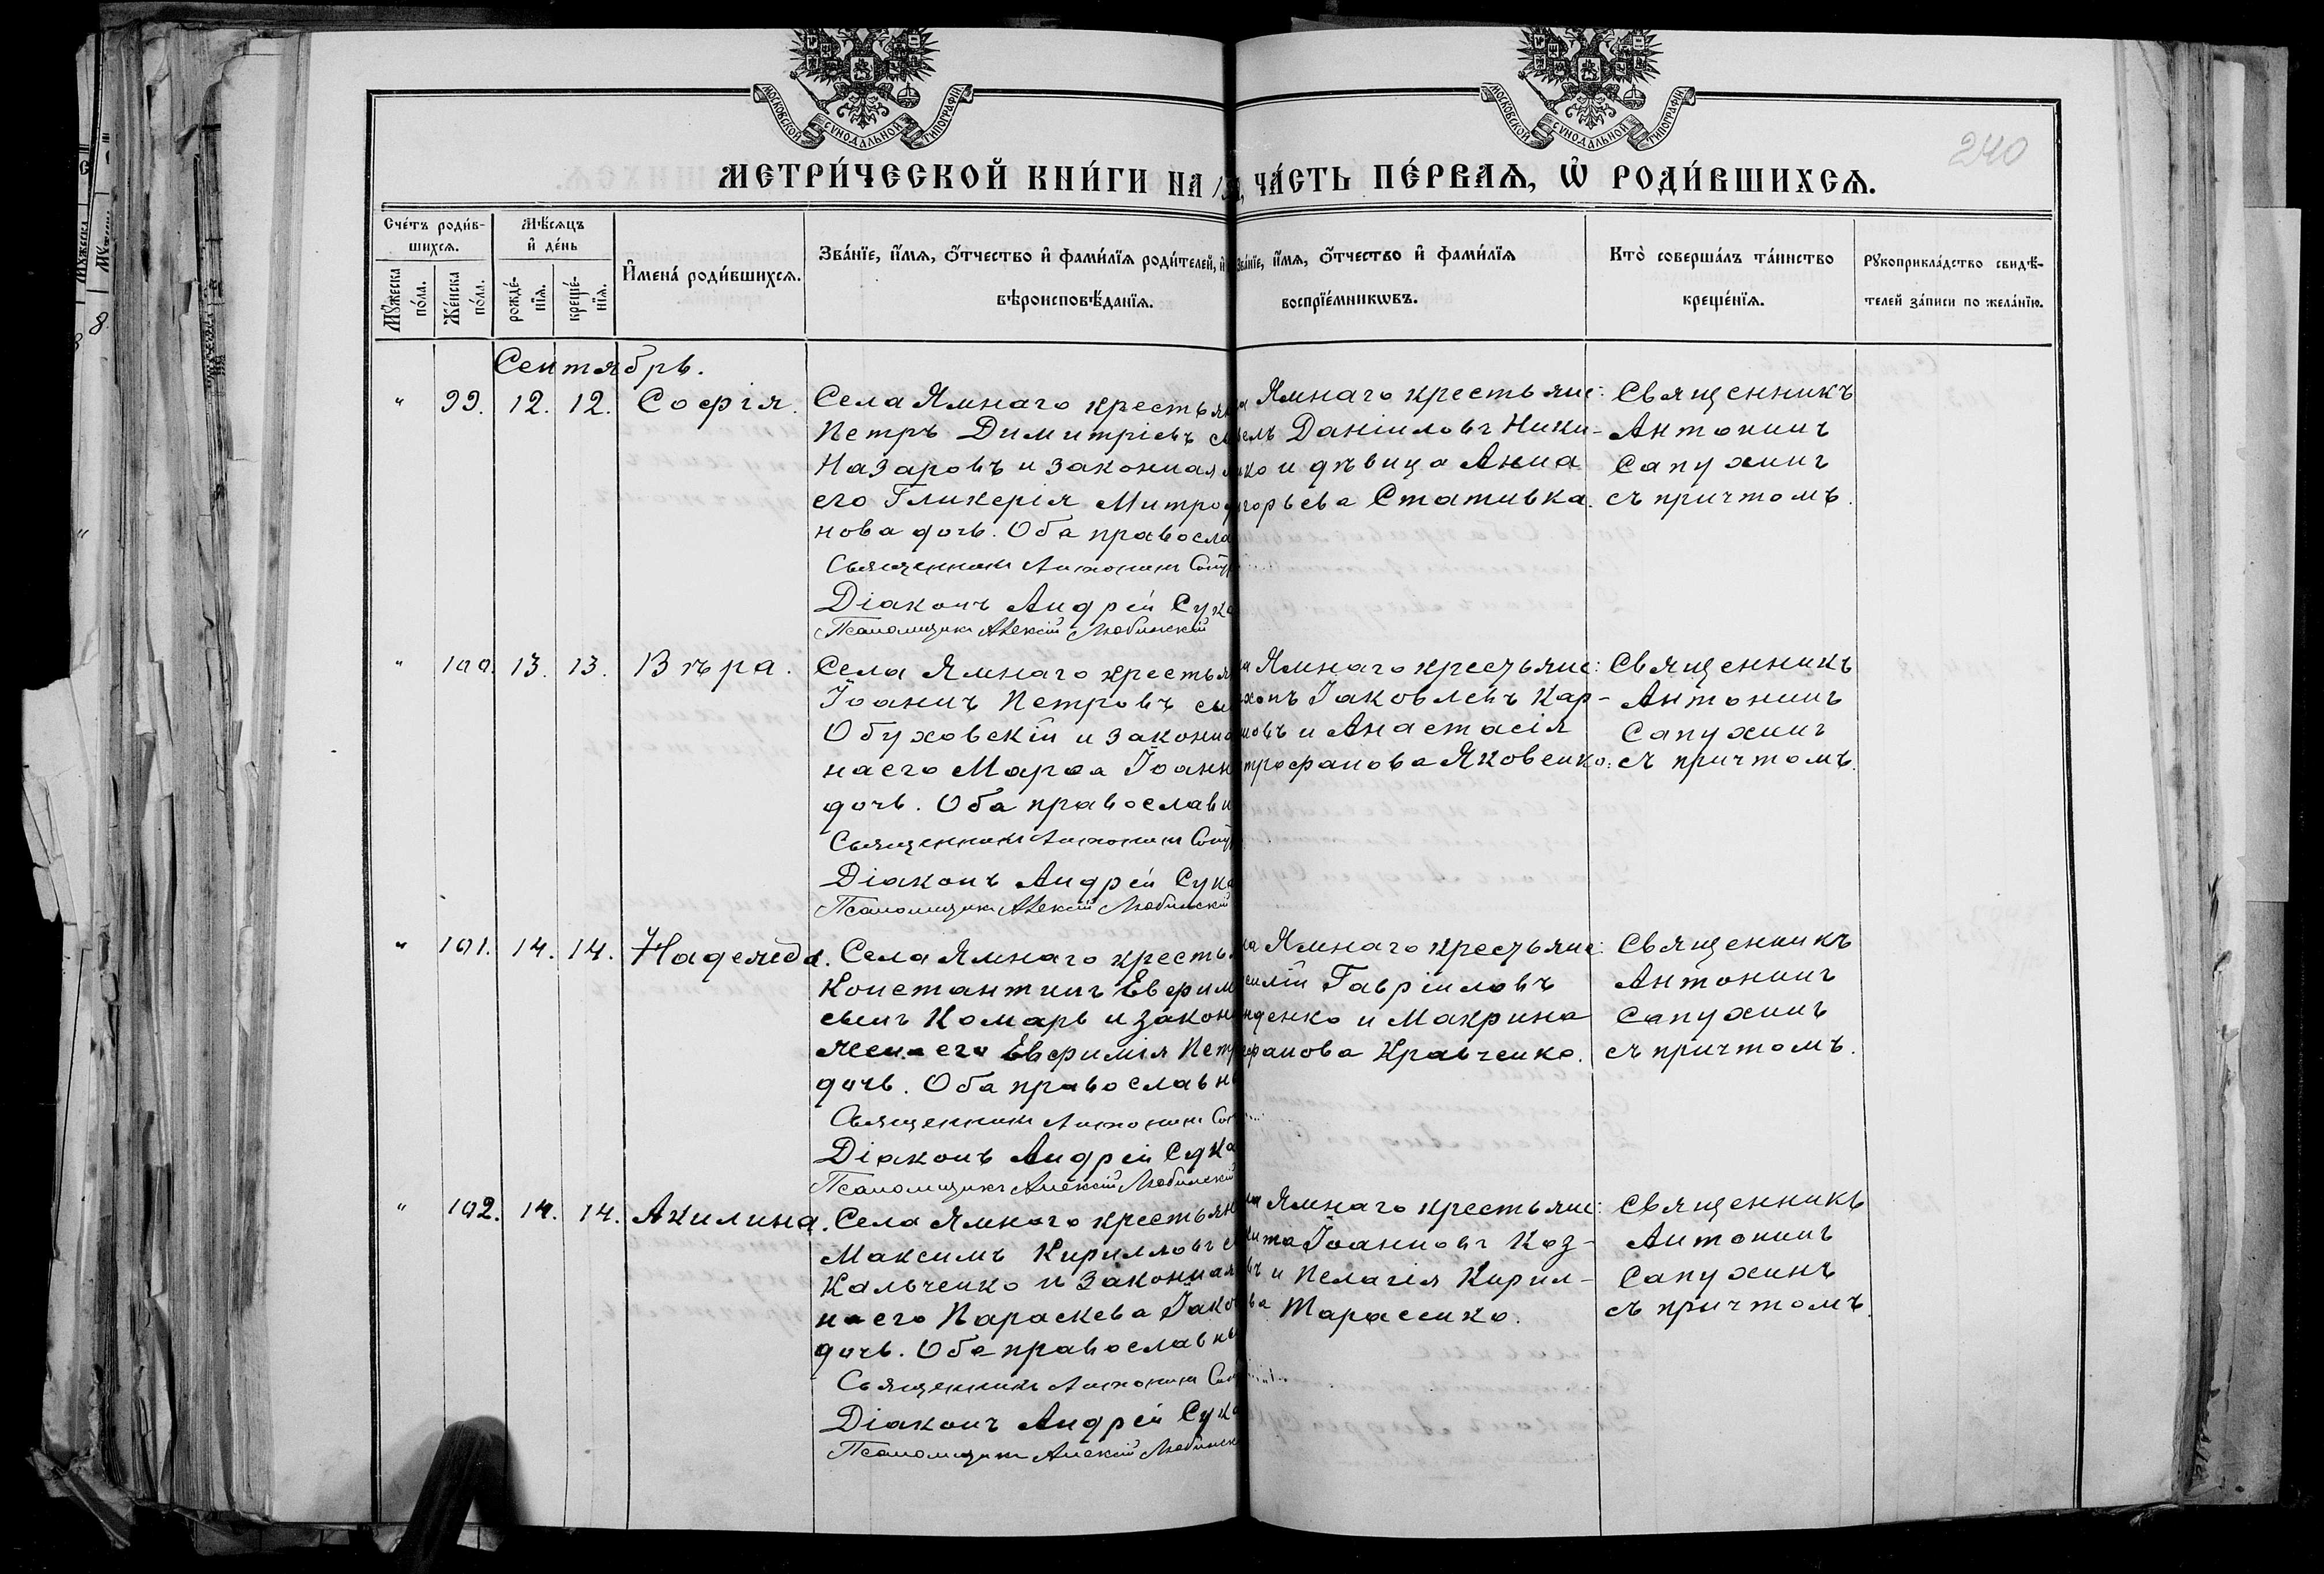 МОСКОВСКОЙ СѴНОДАЛЬНОЙ ТИПОГРАФІИ
МОСКОВСКОЙ СѴНОДАЛЬНОЙ ТИПОГРАФІИ
240
МЕТРИ́ЧЕСКОЙ КНИ́ГИ НА
ЧА́СТЬ ПЕ́РВАѦ, Ѡ҆ РОДИ́ВШИХСѦ.
Сче́тъ роди́в-
шихсѧ.
Мꙋ́жеска по́ла.
Же́нска по́ла.
Мѣ́сѧцъ
и҆ де́нь
рожде́-
нїѧ.
креще́-
нїѧ.
И҆мена̀ роди́вшихсѧ.
Зва́нїе, и҆́мѧ, ѻ҆́тчество и҆ фами́лїѧ роди́телей, и҆
вѣроисповѣ́данїѧ.
Зва́нїе, и҆́мѧ, ѻ҆́тчество и҆ фами́лїѧ
воспрїе́мникѡвъ.
Кто̀ соверша́лъ та́инство
креще́нїѧ.
Рꙋкоприкла́дство свидѣ́-
телей за́писи по жела́нїю.
Сентябрь.
" 99. 12. 12. Софія.
Села Ямнаго крестьян
Петръ Димитріевъ
Назаровъ и законная
его Гликерія Митроф
нова дочь. Оба правосла
Священникъ Антонинъ Сапух
Діаконъ Андрей Сука
Псаломщикъ Алексій Любинскій
Ямнаго крестьяне:
Даніиловъ Ники-
и дѣвица Анна
горьева Стативка.
Священникъ
Антонинъ
Сапухинъ
съ причтомъ.
" 100. 13. 13. Вѣра.
Села Ямнаго крестья
Іоаннъ Петровъ сы
Обуховскій и законна
на его Марѳа Іоанн
дочь. Оба православн
Священникъ Антонинъ Сапух
Діаконъ Андрей Сука
Псаломщикъ Алексій Любинскій
Ямнаго крестьяне:
Іаковлевъ Кар-
повъ и Анастасія
трофанова Яковенко.
Священникъ
Антонинъ
Сапухинъ
съ причтомъ.
" 101. 14. 14. Надежда.
Села Ямнаго кресть
Константинъ Евфим
сынъ Комарь и закон
жена его Евфимія Петр
дочь. Оба православн
Священникъ Антонинъ Сап
Діаконъ Андрей Сука
Псаломщикъ Алексій Любинскій
Ямнаго крестьяне:
силій Гавріиловъ
нденко и Макрина
фанова Кравченко.
Священникъ
Антонинъ
Сапухинъ
съ причтомъ.
" 102. 14. 14. Акилина.
Села Ямнаго крестьян
Максимъ Кирилловъ
Кальченко и законная
на его Параскева Іаков
дочь. Оба православны
Священникъ Антонинъ Сап
Діаконъ Андрей Сука
Псаломщикъ Алексій Любинск
Ямнаго крестьяне:
кита Іоанновъ Коз-
въ и Пелагія Кирил-
ва Тарасенко.
Священникъ
Антонинъ
Сапухинъ
съ причтомъ.